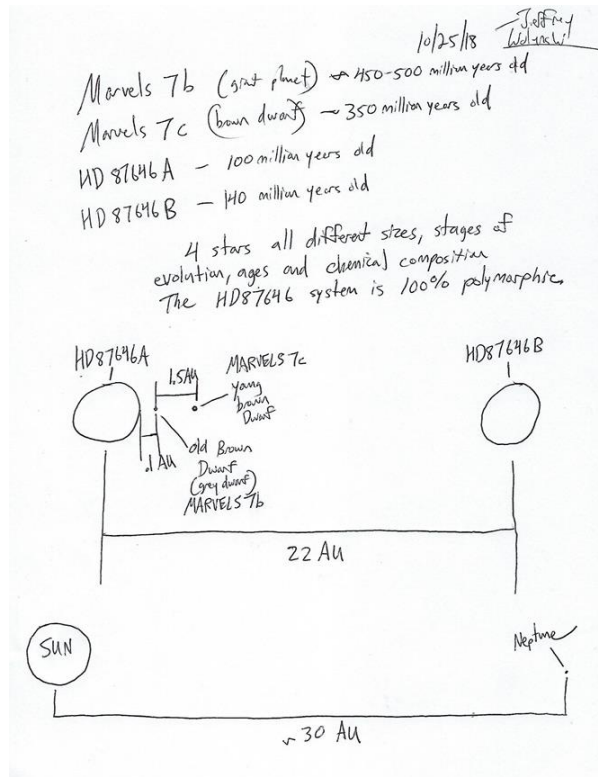 10/25/18 Jeffrey
Wolynski
Marvels 7b (giant planet) ~ 450-500 million years old
Marvels 7c (brown dwarf) ~ 350 million years old
HD 87646A - 100 million years old
HD 87646B - 140 million years old
4 stars all different sizes, stages of
evolution, ages and chemical composition
The HD87646 system is 100% polymorphic.
HD87646A
1.5AU
MARVELS 7c
young
brown
Dwarf
HD87646B
.1 AU
old Brown
Dwarf
(grey dwarf)
MARVELS 7b
22 AU
SUN
Neptune
~30 AU